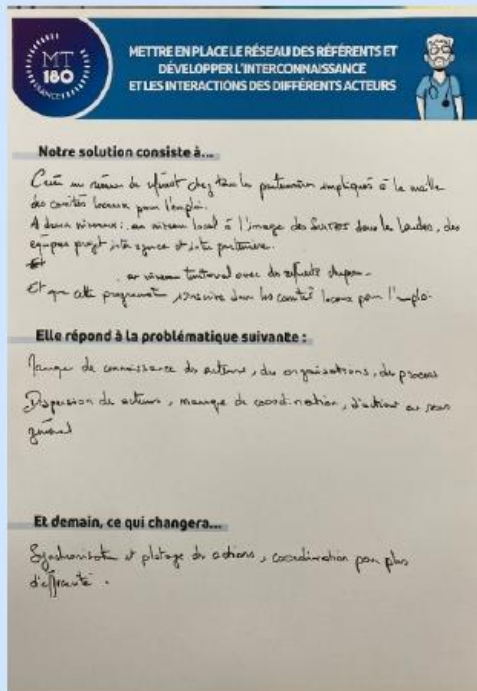 MT
180
FRANCE
METTRE EN PLACE LE RÉSEAU DES RÉFÉRENTS ET
DÉVELOPPER L'INTERCONNAISSANCE
ET LES INTERACTIONS DES DIFFÉRENTS ACTEURS
Notre solution consiste à...
Créé un réseau de référent chez tous les partenaires impliqués à la maille
des comités locaux pour l'emploi.
A deux niveaux : au niveau local à l'image des dans les Landes, des
équipes projet inter agence et inter partenaire.
Et
au niveau territorial avec des référents
Et que cette s'inscrive dans les comités locaux pour l'emploi.
Elle répond à la problématique suivante :
Manque de connaissance des acteurs, des organisations, des process
Dispersion des acteurs, manque de coordination, d'actions au sens
général
Et demain, ce qui changera...
Synchronisation et pilotage des actions, coordination pour plus
d'efficacité.